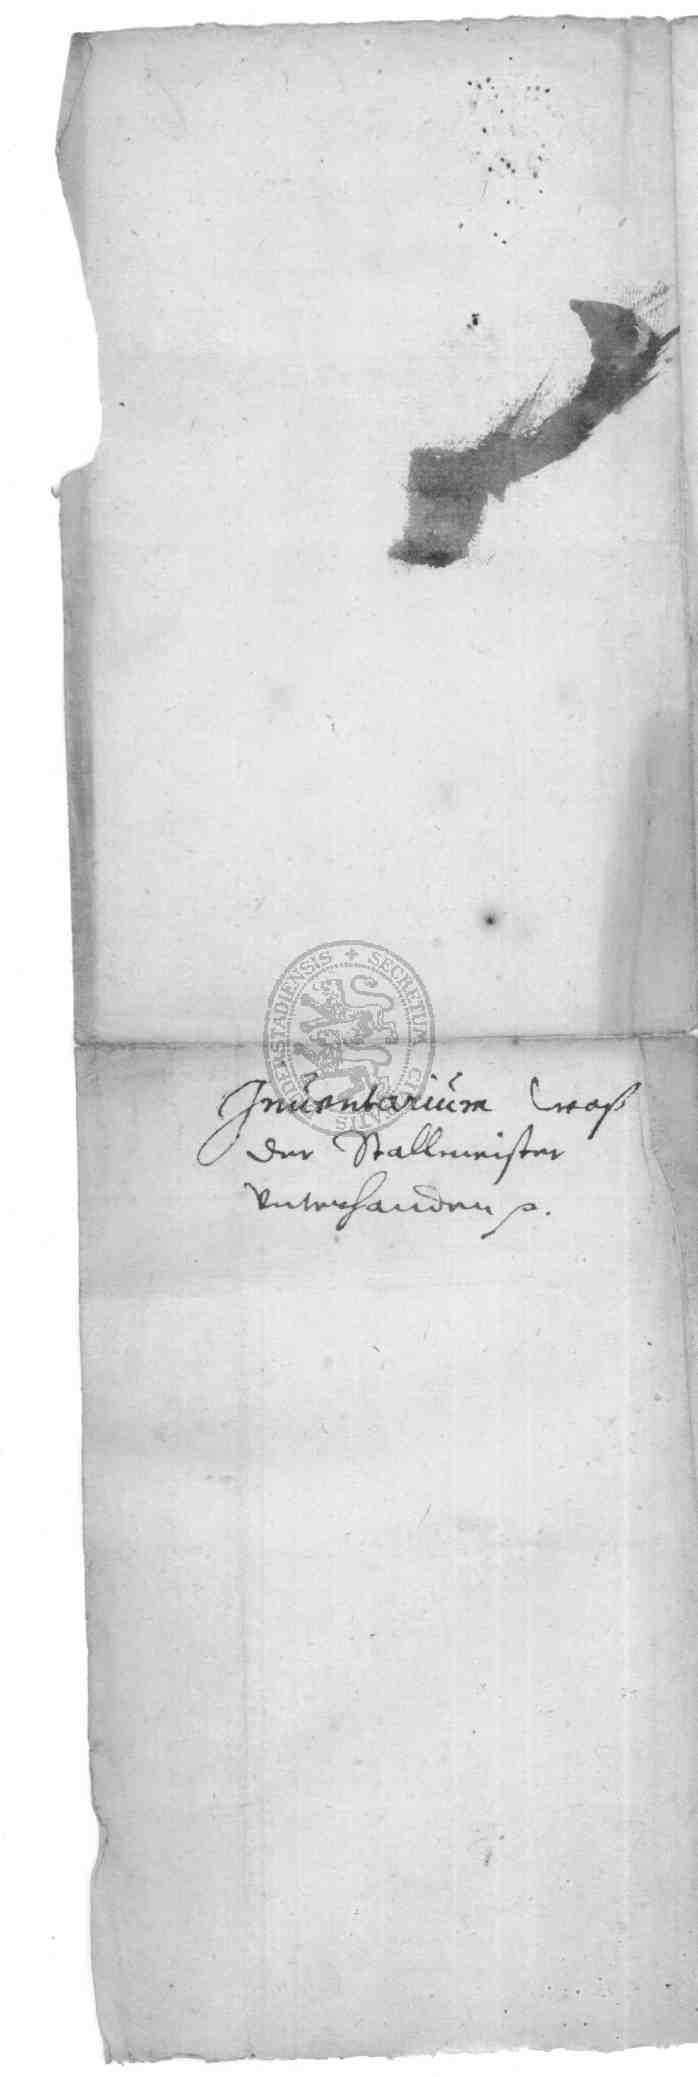 SECRETUM CIVITATIS DUDERSTADIENSIS
Inuentarium waß
der Stallmeister
Unterhanden p.